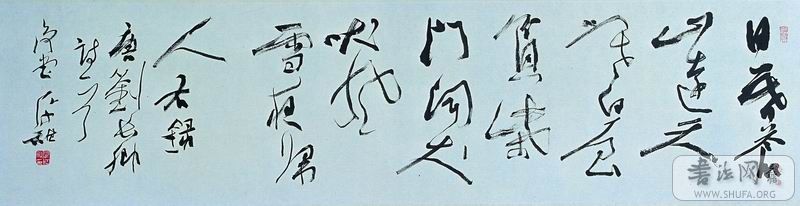 日暮蒼
山遠天
寒白屋
貧柴
門聞犬
吠風
雪夜歸
人右錄
唐劉長卿
詩一首
书法网
WWW.SHUFA.ORG